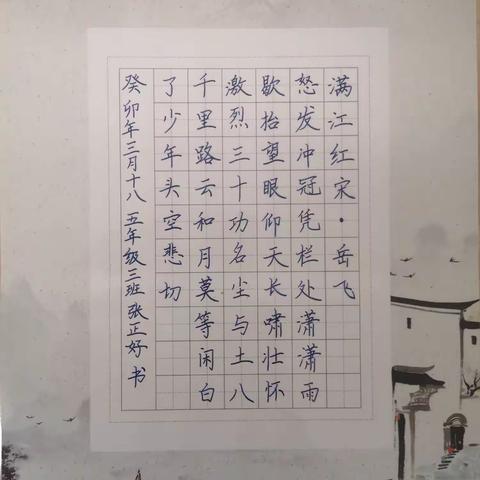 满江红宋·岳飞
怒发冲冠凭栏处潇潇雨
歇抬望眼仰天长啸壮怀
激烈三十功名尘与土八
千里路云和月莫等闲白
了少年头空悲切
癸卯年三月十八 五年级三班 张正好 书